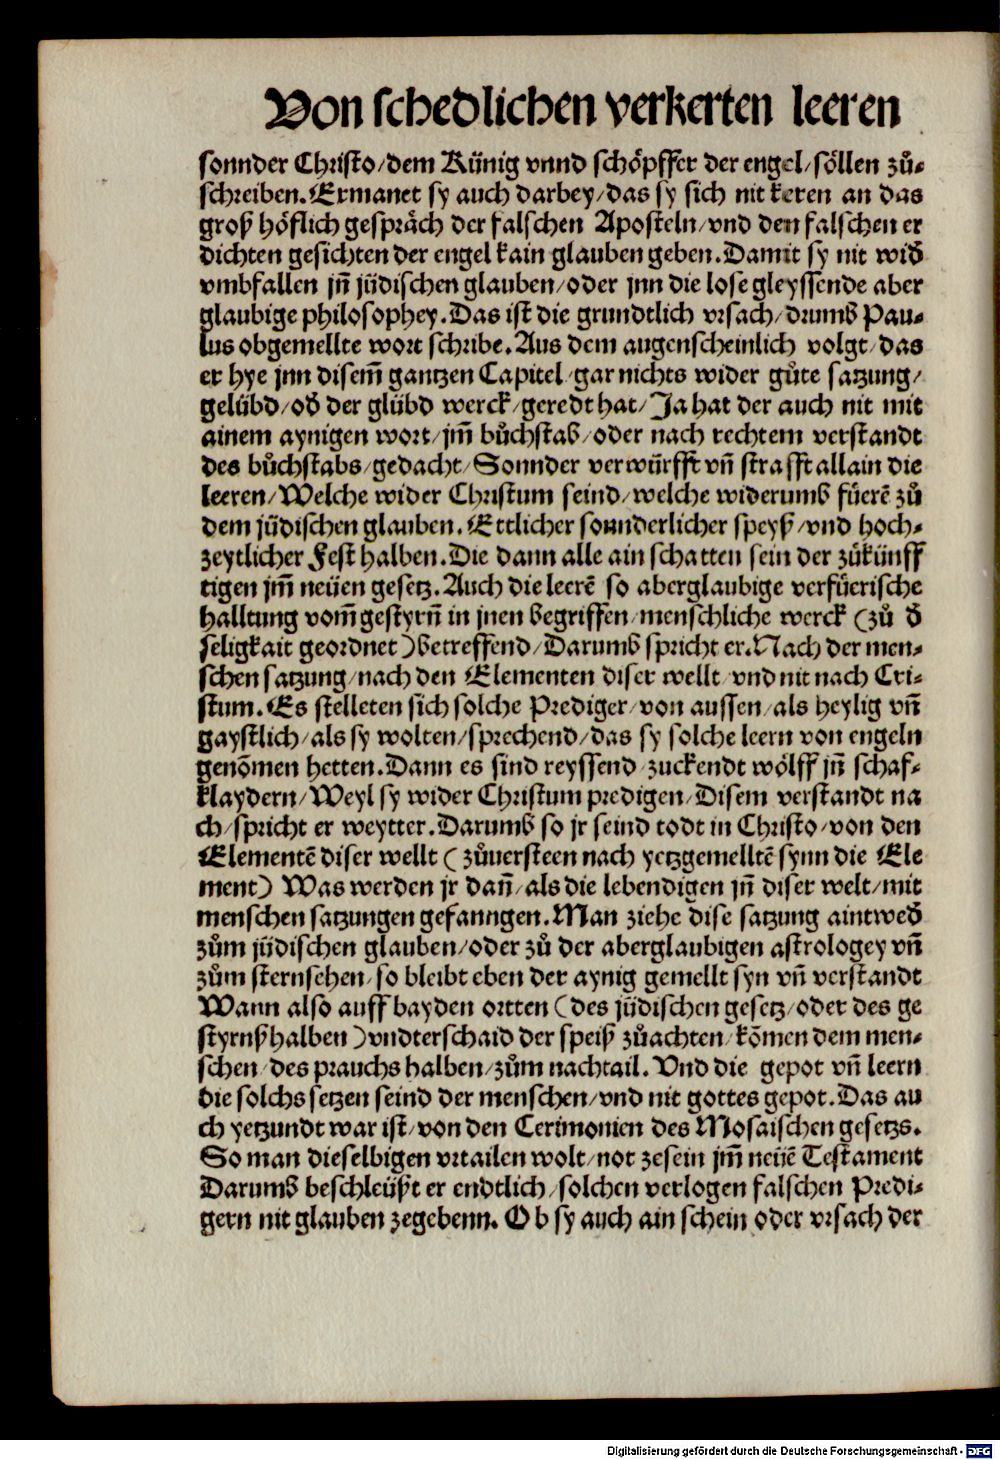 Von schedlichen verkerten leeren
sonnder Christo/dem Künig vnnd schöpffer der engel/söllen zů⸗
schreiben.Ermanet sy auch darbey/das sy sich nit keren an das
groß höflich gespräch der falschen Aposteln/vnd den falschen er
dichten gesichten der engel kain glauben geben.Damit sy nit wiđ
vmbfallen jn̄ jüdischen glauben/oder jnn die lose gleyssende aber
glaubige philosophey.Das ist die grundtlich vrsach/drumb Pau⸗
lus obgemellte wort schribe.Aus dem augenscheinlich volgt/das
er hye jnn disem̄ gantzen Capitel/gar nichts wider gůte satzung/
gelübd/ob der glübd werck/geredt hat/Ja hat der auch nit mit
ainem aynigen wort/jm̄ bůchstab/oder nach rechtem verstandt
des bůchstabs/gedacht/Sonnder verwürfft vn̄ strafft allain die
leeren/Welche wider Christum seind/welche widerumb füerē zů
dem jüdischen glauben.Ettlicher sonnderlicher speyß/vnd hoch⸗
zeytlicher Fest halben.Die dann alle ain schatten sein der zůkünff
tigen jm̄ neüen gesetz.Auch die leerē so aberglaubige verfüerische
halltung vom̄ gestyrn̄ in jnen begriffen/menschliche werck (zů đ
seligkait geordnet)betreffend/Darumb spricht er.Nach der men⸗
schen satzung/nach den Elementen diser wellt/vnd nit nach Cri⸗
stum.Es stelleten sich solche Prediger/von aussen/als heylig vn̄
gaystlich/als sy wolten/sprechend/das sy solche leern von engeln
genōmen hetten.Dann es sind reyssend/zuckendt wölff jn̄ schaf⸗
klaydern/Weyl sy wider Christum predigen/Disem verstandt na
ch/spricht er weytter.Darumb so jr seind todt in Christo/von den
Elementē diser wellt (zůuersteen nach yetzgemelltē synn die Ele
ment) Was werden jr dan̄/als die lebendigen jn̄ diser welt/mit
menschen satzungen gefanngen.Man ziehe dise satzung aintweđ
zům jüdischen glauben/oder zů der aberglaubigen astrologey vn̄
zům sternsehen/so bleibt eben der aynig gemellt syn vn̄ verstandt
Wann also auff bayden ortten (des jüdischen gesetz/oder des ge
styrnß halben)vndterschaid der speiß zůachten/kōmen dem men⸗
schen/des prauchs halben/zům nachtail. Vnd die gepot vn̄ leern
die solchs setzen seind der menschen/vnd nit gottes gepot.Das au
ch yetzundt war ist/von den Cerimonien des Mosaischen gesetzs.
So man dieselbigen vrtailen wolt/not zesein jm̄ neüē Testament
Darumb beschleüßt er endtlich/solchen verlogen falschen Predi⸗
gern nit glauben zegebenn. Ob sy auch ain schein oder vrsach der
Digitalisierung gefördert durch die Deutsche Forschungsgemeinschaft - DFG